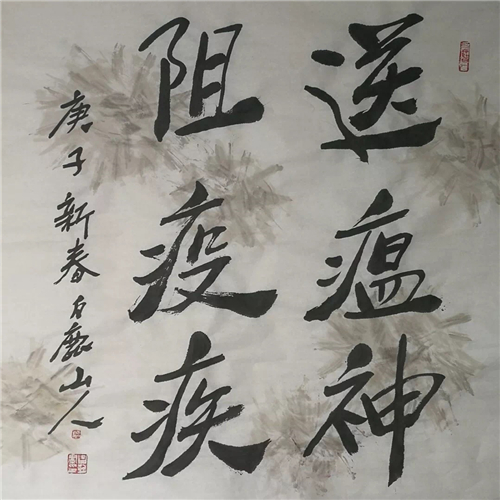 送瘟神
阻疫疾
庚子新春白鹿山人